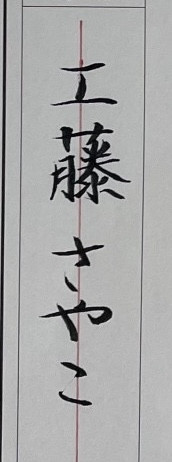 工藤さやこ